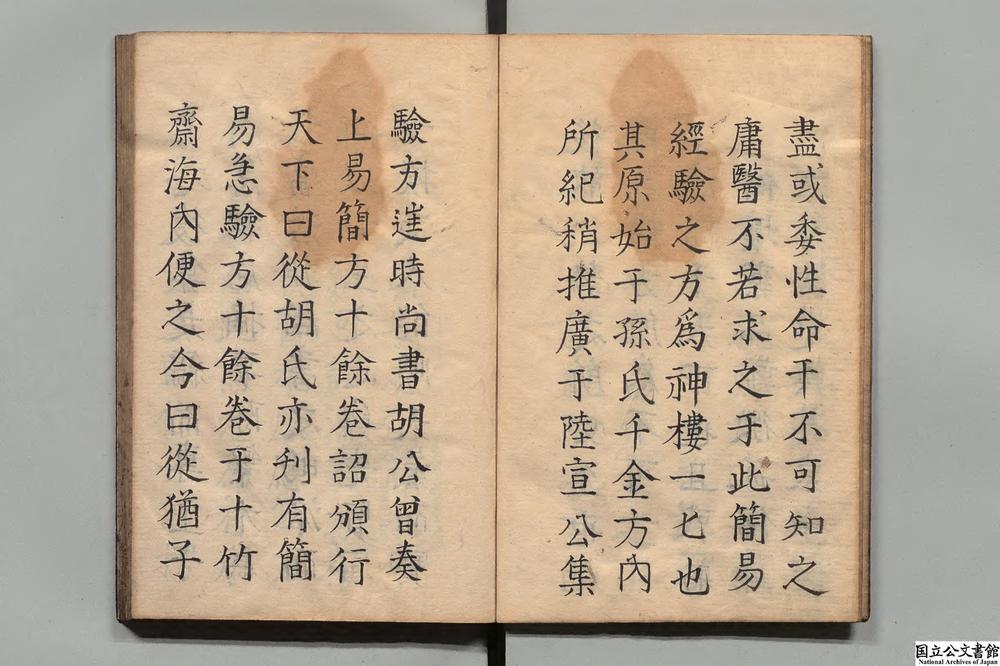 盡或委性命于不可知之
庸醫不若求之于此簡易
經驗之方爲神樓一匕也
其原始于孫氏千金方內
所紀稍推廣于陸宣公集
驗方遑時尚書胡公曾奏
上易簡方十餘卷詔頒行
天下曰從胡氏亦刋有簡
易急驗方十餘卷于十竹
齋海內便之今曰從猶子
国立公文書館
National Archives of Japan